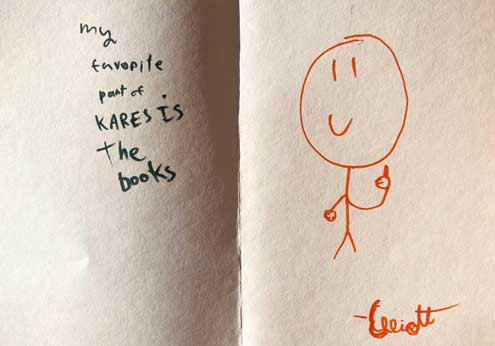 my
favorite
part of
KARES IS
The
books
-Elliott